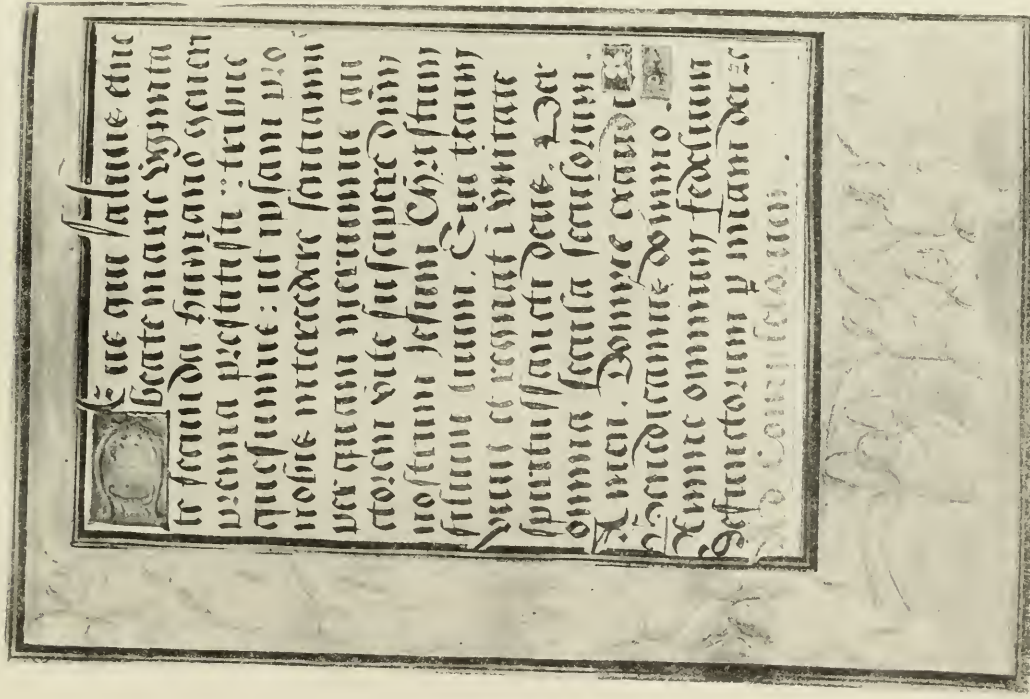 Deus qui salutis etne
beate marie virginita
te fecunda humano generi
premia prestitisti : tribue
quesumus : ut ipsam pro
nobis intercedere sentiam'
per quam meruimus au
ctorem vite suscipere dn̄m
nostrum iesum Christum
filium tuum. Qui tecum
vivit et regnat ī vnitate
spiritussancti deus. Per
omnia secula seculorum.
Amen. Domine exaudi
Benedicamus domino.
Anime omnium fidelium
defunctorum p̄ miam dei ⁊c
Ad Completorium.